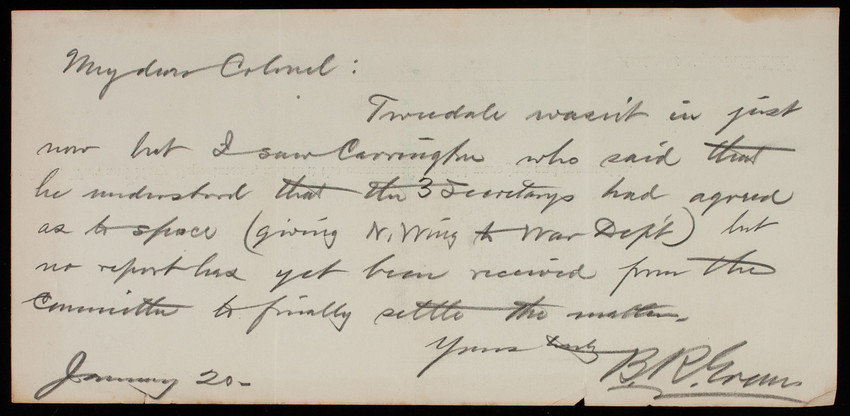 My dear Colonel:
Tweedale wasn't in just
now but I saw Carrington who said that
he understood that the 3 Secretarys had agreed
as to space (giving N. Wing to War Dep't) but
no report has yet been received from the
Committee to finally settle the matter.
Yours truly
B. R. Green
January 20-